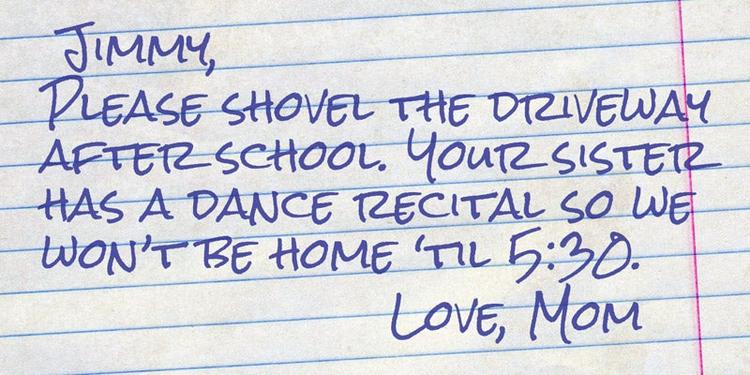 Jimmy,
Please shovel the driveway
after school. Your sister
has a dance recital so we
won't be home 'til 5:30.
Love, Mom